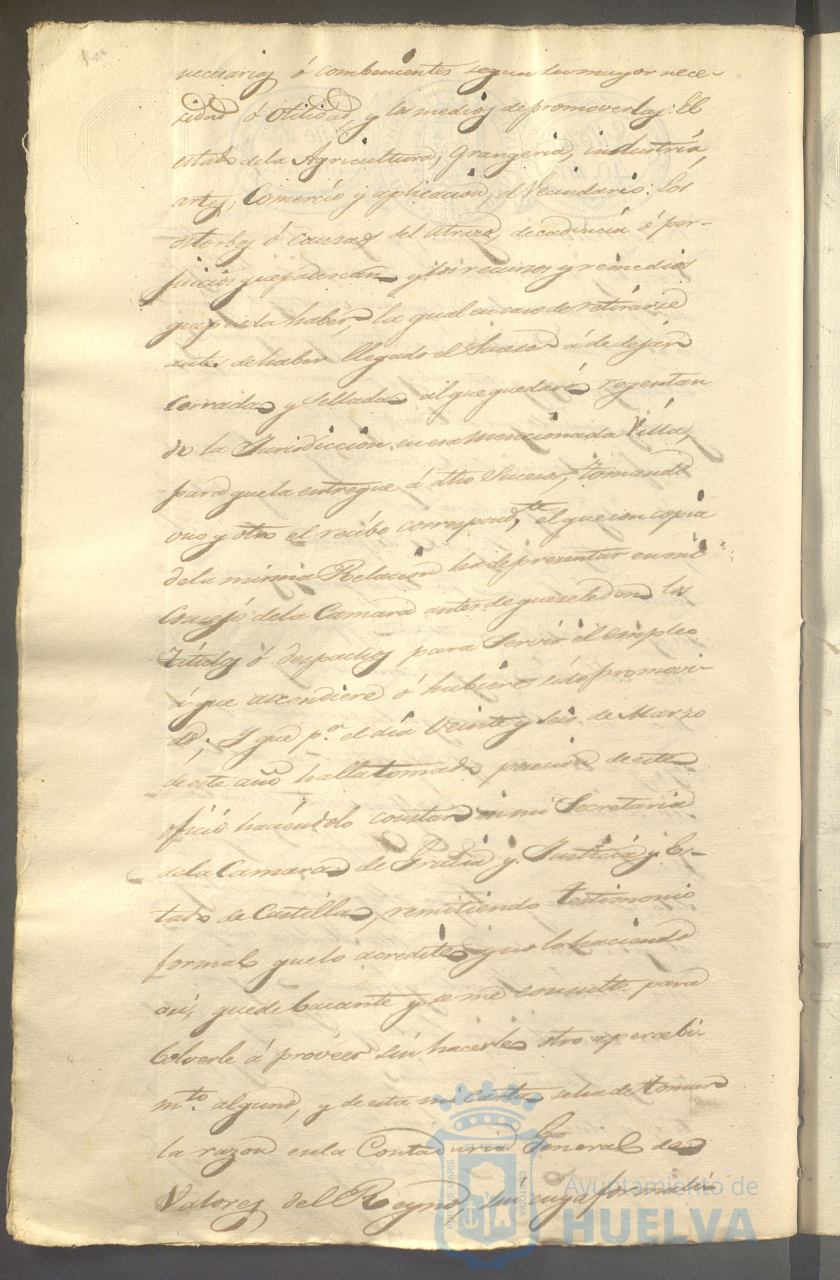 necesarios ó combenientes segun su mayor nece-
sidad ó utilidad y los medios de promoverlos: El
estado de la Agricultura, Grangeria, industria,
artes, Comercio y aplicacion, del Vecindario: los
estorbos ó causas del atraso, decadencia ó per-
juicios que padescan y los recursos y remedios
que pueda haber, la qual en caso de retirarse
antes de haber llegado el Sucesor á de dejar
Cerrada y sellada al que quedare regentan
do la Jurisdiccion en esa mencionada Villa,
para que la entregue á dho Sucesor, tomando
uno y otro el recibo correspond.te el que con copia
de la misma Relacion ha de presentar en mi
Consejo de la Camara antes de que se le den los
Titulos ó despachos para servir el empleo
á que ascendiere ó hubiere sido promovi-
do; Y que p.a el dia Veinte y seis de Marzo
de este año halla tomado posecion de este
oficio haciendolo constar en mi Secretaria
de la Camara de Gracia y Justicia y Es-
tado de Castilla, remitiendo testimonio
formal que lo acredite y no lo haciendo
asi, quede bacante y se me consulte para
bolverle á proveer sin hacerle otro apercebi-
m.to alguno, y de esta mi carta se ha de tomar
la razon en la Contaduria General de
Valores del Reyno, sin cuya formali-
Ayuntamiento de
HUELVA